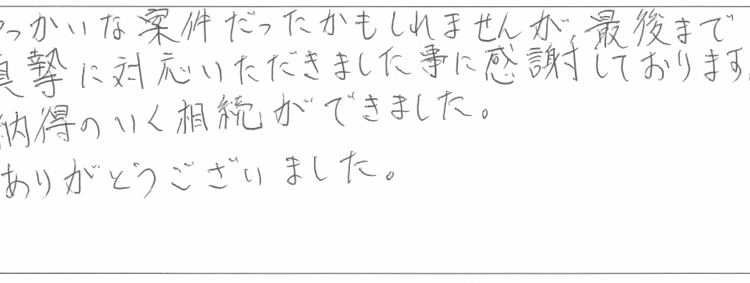 やっかいな案件だったかもしれませんが、最後まで
真摯に対応いただきました事に感謝しております。
納得のいく相続ができました。
ありがとうございました。